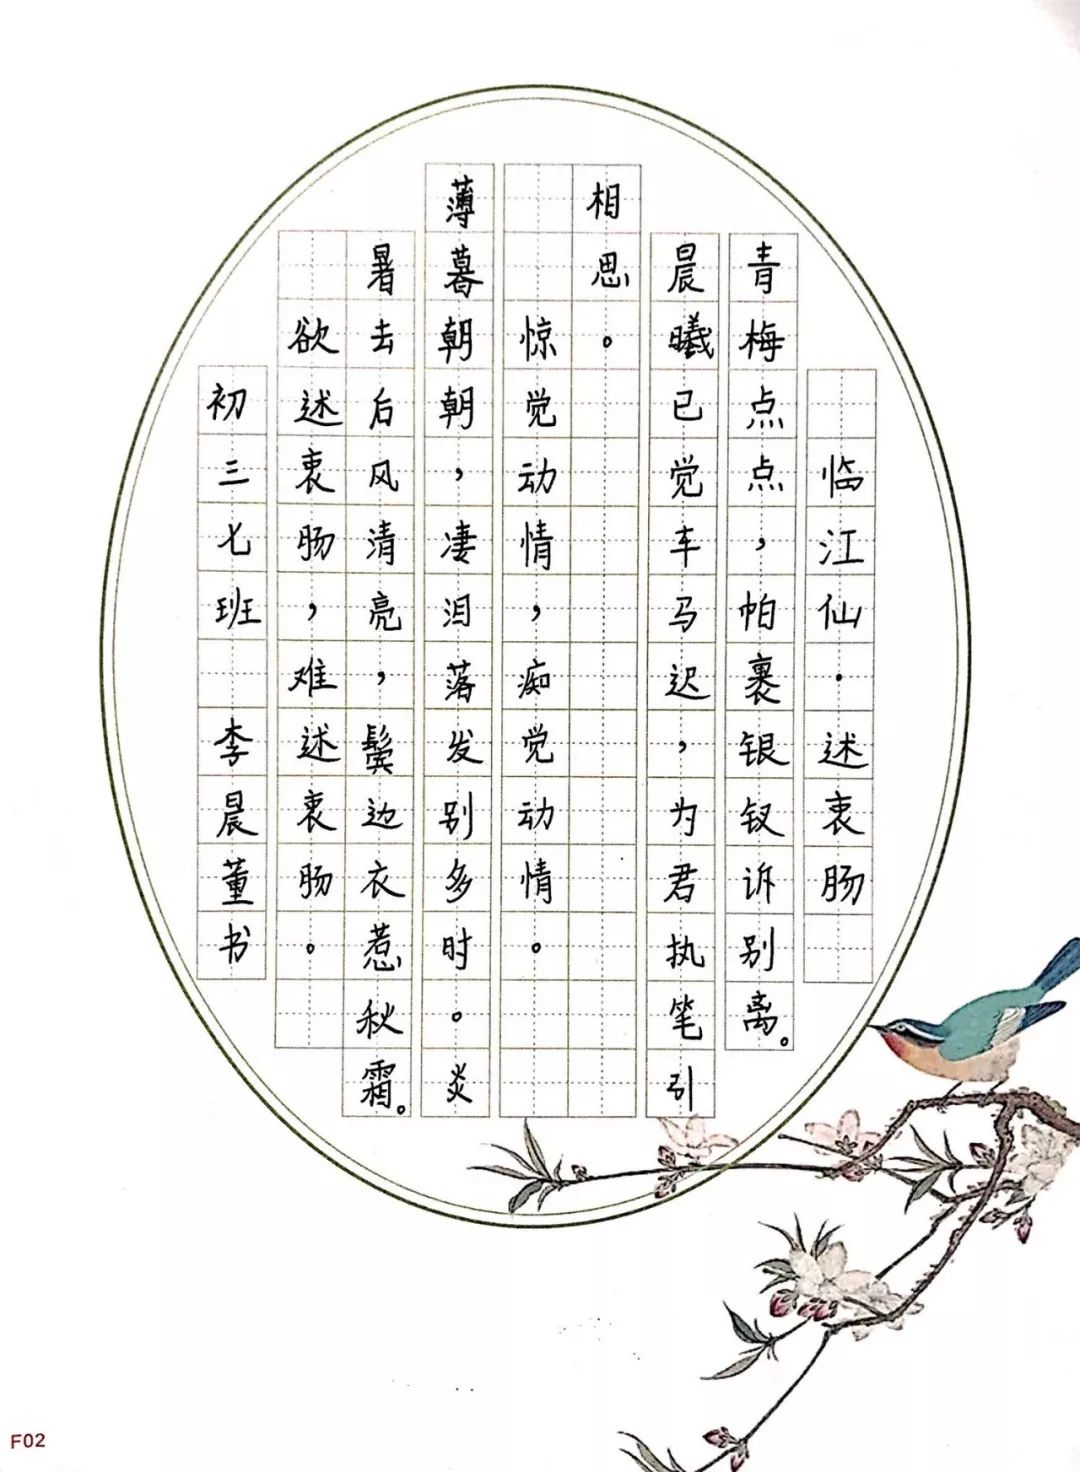 临江仙·述衷肠
青梅点点，帕裹银钗诉别离。
晨曦已觉车马迟，为君执笔引
相思。
惊觉动情，痴觉动情。
薄暮朝朝，凄泪落发别多时。炎
暑去后风清亮，鬓边衣惹秋霜。
欲述衷肠，难述衷肠。
初三七班 李晨董书
F02